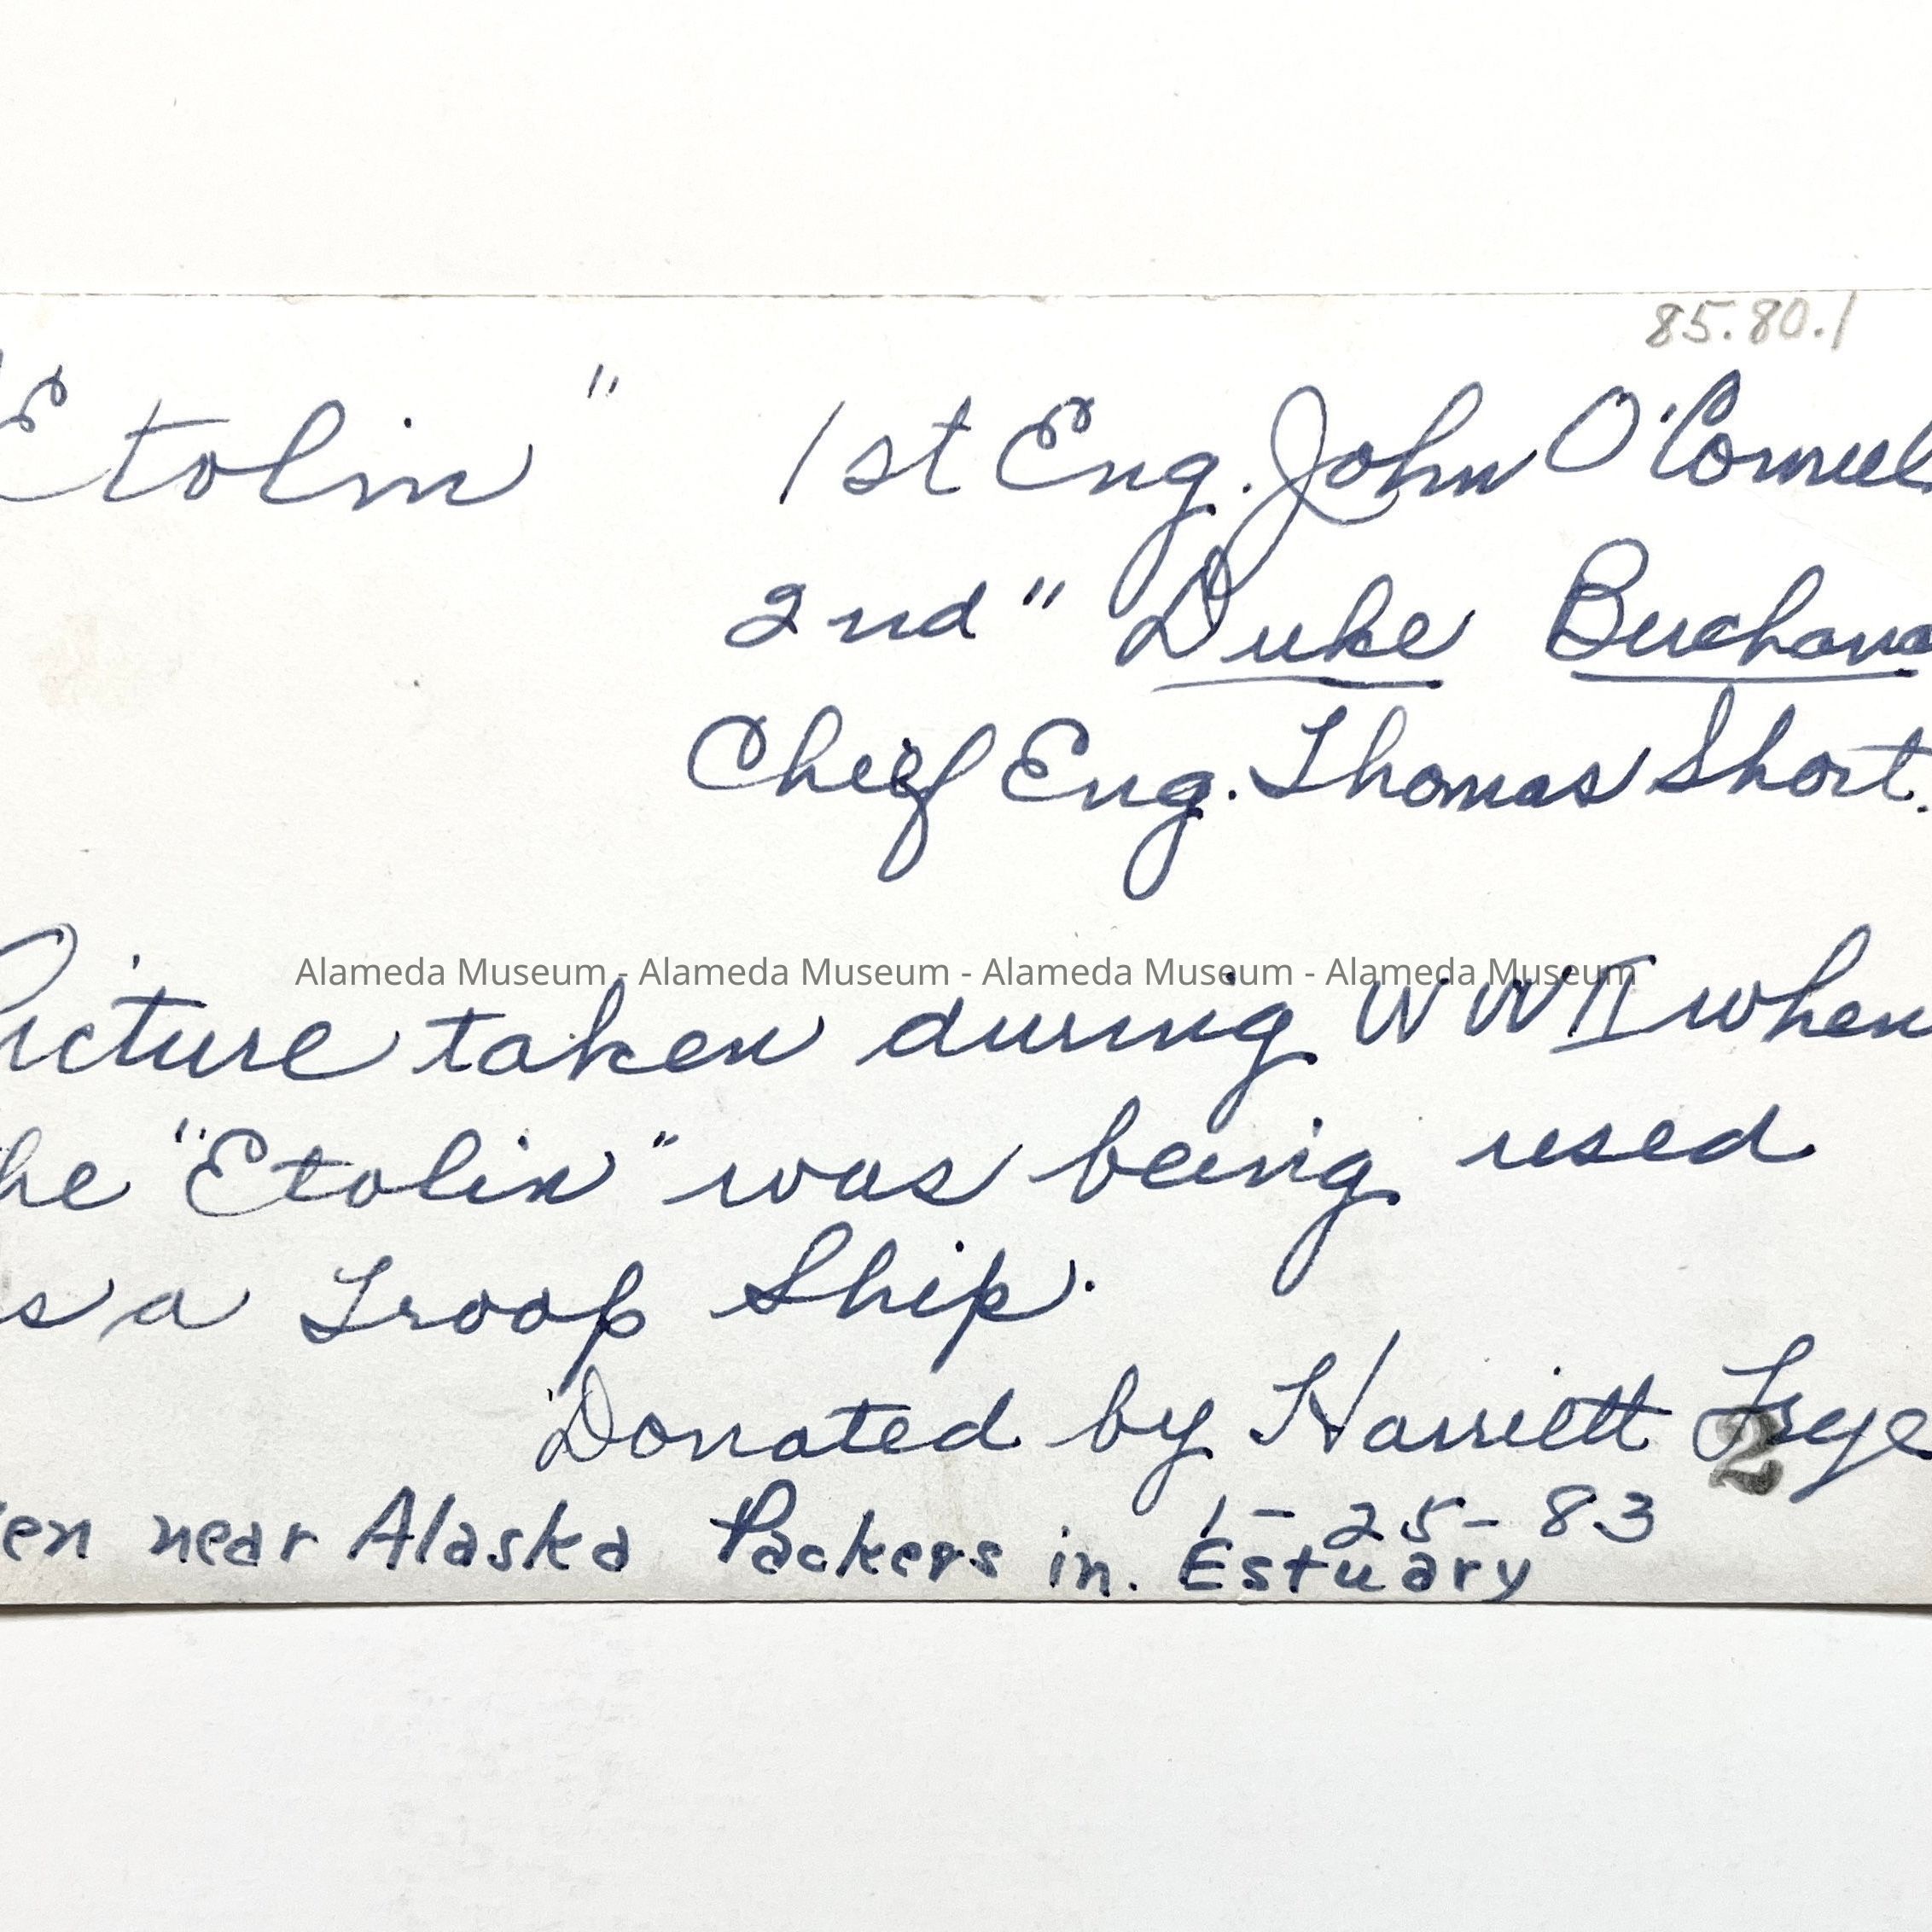 85.80.1
"Etolin" 1st Eng. John O'Connell
2nd " Duke Buchana
Chief Eng. Thomas Short.
Alameda Museum - Alameda Museum - Alameda Museum - Alameda Museum
Picture taken during WWII when
he "Etolin" was being used
s a Troop Ship.
Donated by Harriett
2
1-25-83
en near Alaska Packers in. Estuary